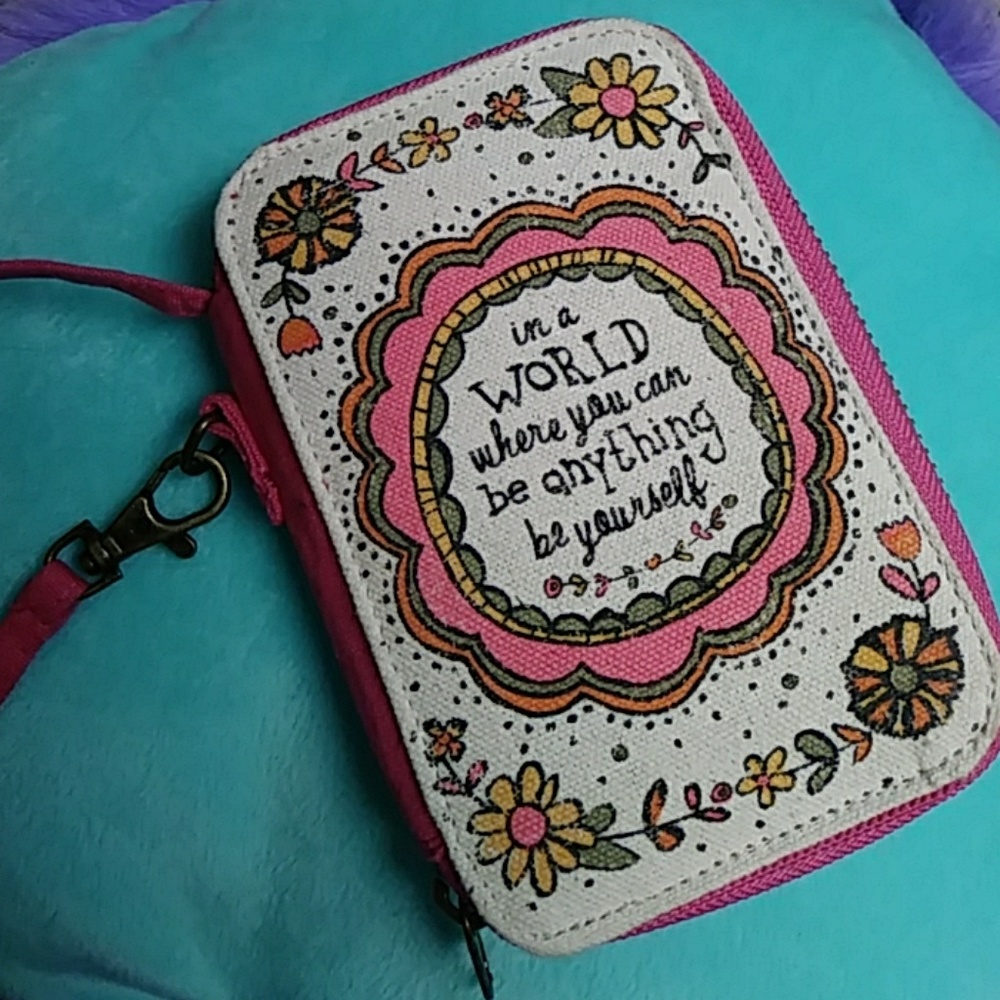 in a
WORLD
where you can
be anything
be yourself